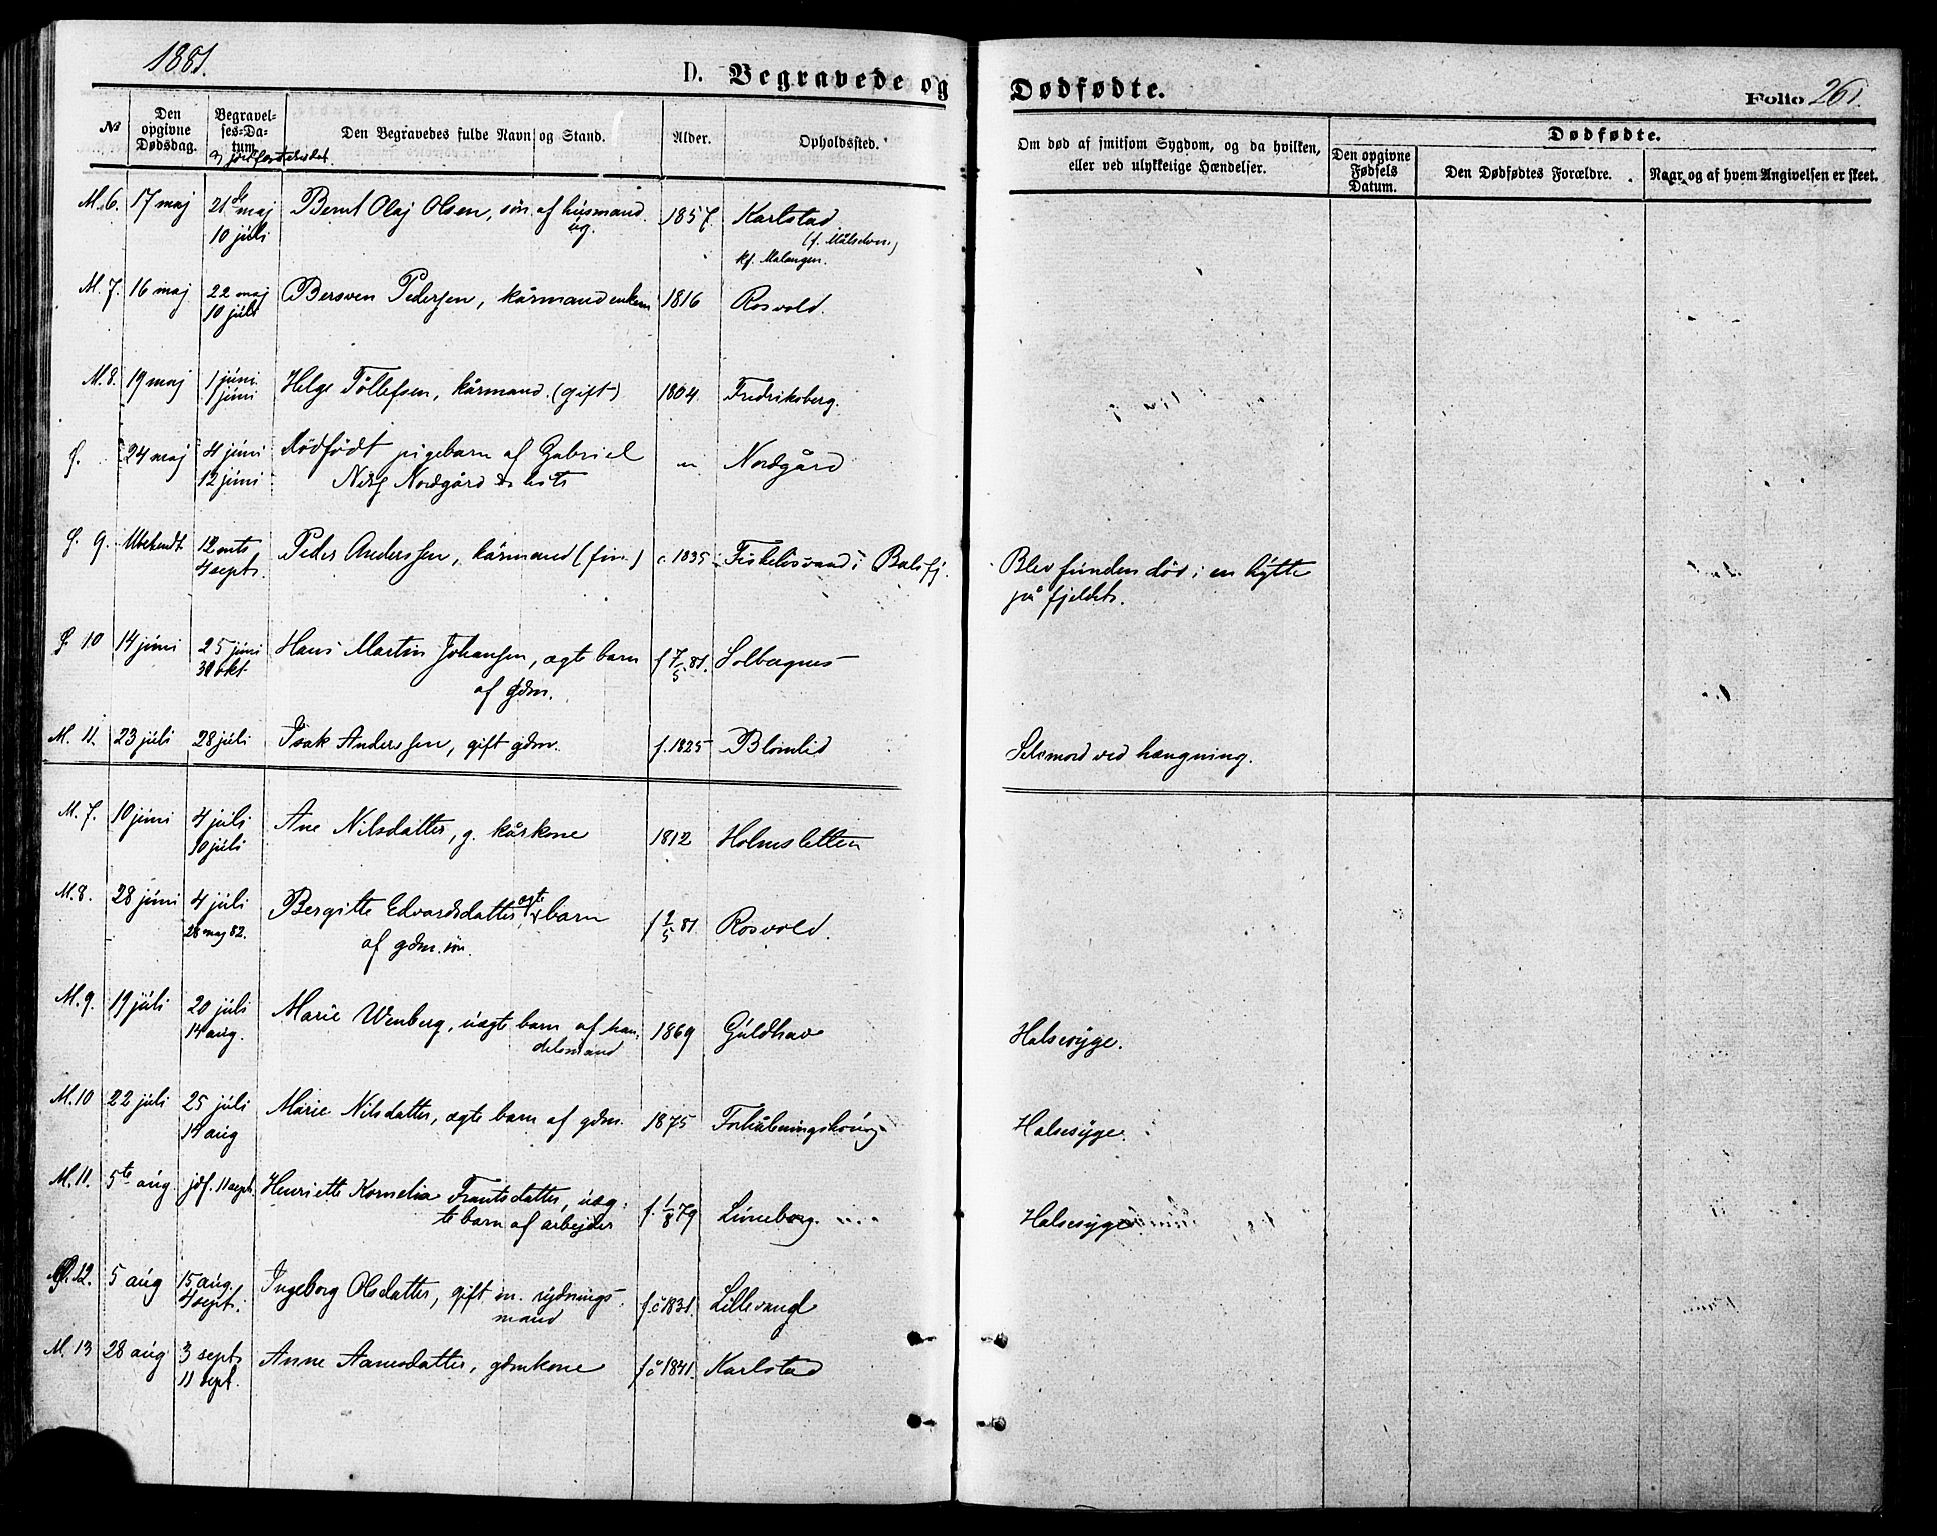 1881.
D. Begravede og Dødfødte. Folio 261.
№ Den opgivne Dødsdag. Begravelses-Datum. og jordfæstelsesdat. Den Begravedes fulde Navn og Stand. Alder. Opholdssted. Om død af smitsom Sygdom, og da hvilken, eller ved ulykkelige Hændelser. Den opgivne Fødsels Datum. Dødfødte. Den Dødfødtes Forældre. Naar og af hvem Angivelsen er skeet.
M. 6. 17 maj 21de maj Bernt Olaj Olsen, søn af husmand 1857. Karlstad
10 juli ug. (f. Målselven.)
kf. Malangen.
M. 7. 16 maj 22 maj Bersven Pedersen, kårmand enkem 1816 Rosvold.
10 juli
M. 8. 19 maj 1 juni Helge Tollefsen, kårmand. (gift) 1804. Fredriksberg.
1 juni
24 maj 4 juni Dødfødt pigebarn af Gabriel " Nordgård
12 juni Nordgård & hust
9. Ubekendt 12 Peder Anderssen, kårmand (fin.) c. 1835 Fiskelisvand i Balsfj. Blev funden død i en hytte
4 sept. på fjeldet.
10 14 juni 25 juni Hans Martin Johansen, ægte barn f 7/5 81. Solbergnes
30 okt. af gdm.
M. 11. 23 juli 28 juli Isak Anderssen, gift gdm. f. 1825 Blomlid Selvmord ved hængning.
M. 7. 10 juni 4 juli Ane Nilsdatter, g. kårkone 1812 Holmsletten
10 juli
M. 8. 28 juni 4 juli Bergitte Edvardsdatter, ægte barn f 2/5 81 Rosvold.
28 maj 82. af gdm. søn.
M. 9. 19 juli 20 juli Marie Wenberg, uægte barn af han- 1869 Guldhav Halsesyge.
14 aug. delsmand
M. 10 22 juli 25 juli Marie Nilsdatter, ægte barn af gdm. 1875 Halsesyge.
14 aug
M. 11. 5te aug. jdf. 11 sept. Henriette Kornelia Frantsdatter, uæg- f. 1/8 79 Luneborg. Halsesyge
te barn af arbejder
12. 5 aug 15 aug. Ingeborg Olsdatter, gift m. rydnings- f. c 1831. Lillevand
4 sept. mand
M. 13 28 aug 3 sept. Anne Aanesdatter, gdmkone f. c 1841. Karlstad
11 sept.